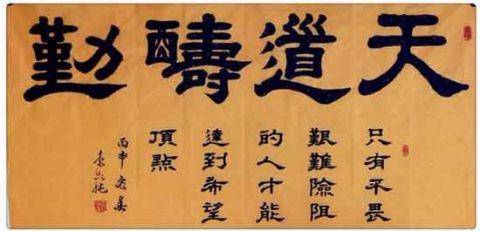 天道醻勤
只有不畏
艱難險阻
的人才能
達到希望
頂點
丙申